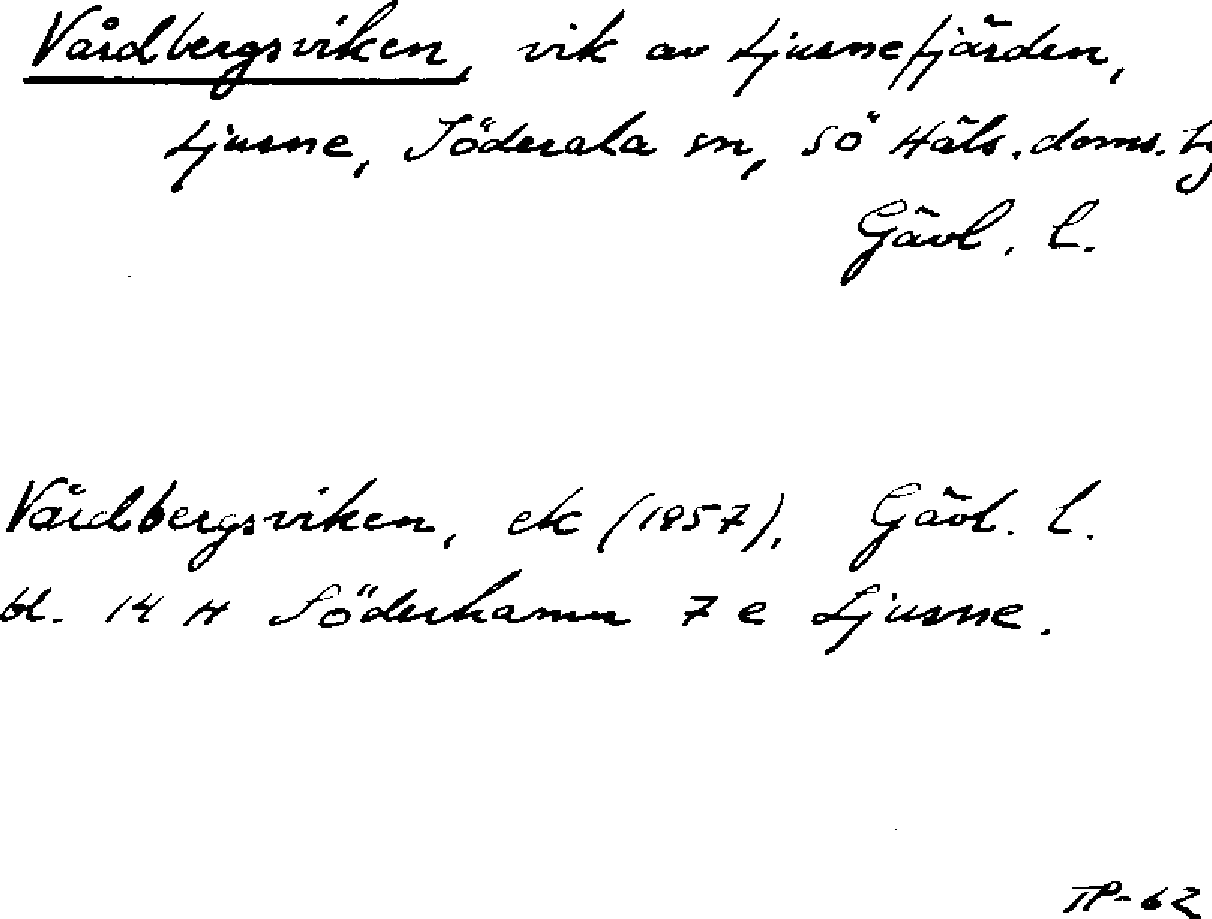 Vårdbergsviken, vik av Ljusnefjärden,
Ljusne, Söderala sn, sö Häls. doms.
Gävl. l.
Vårdbergsviken, ek (1957), Gävl. l.
bl. 14 H Söderhamn 7 e Ljusne.
TP-62